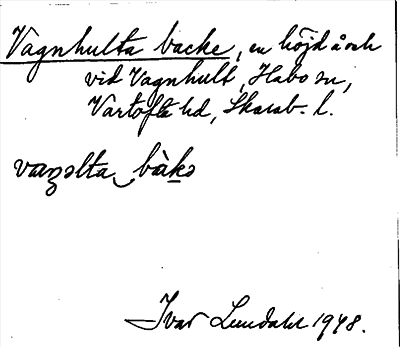 Vagnhulta backe, en höjd å och
vid Vagnhult, Habo sn,
Vartofta hd, Skarab. l.
vaŋəlta bàkə
Ivar Lundahl 1948.